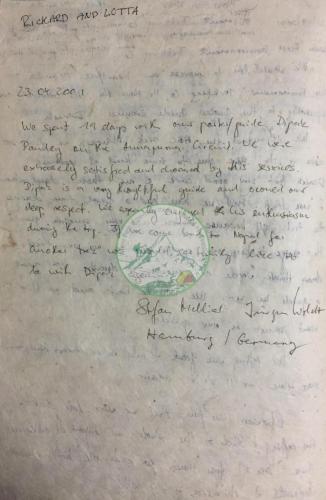 RICKARD AND LOTTA
23.04.2001
We spent 19 days with our porter/guide Dipak
Pandey on the Annapurna Circuit. We were
extremely satisfied and charmed by his services.
Dipak is a very thoughtful guide and earned our
deep respect. We enjoyed his enthusiasm
during the trip. If we come back to Nepal for
another "trek" we would certainly love to
to with Dipak.
Stefan Jürgen
Hamburg / Germany